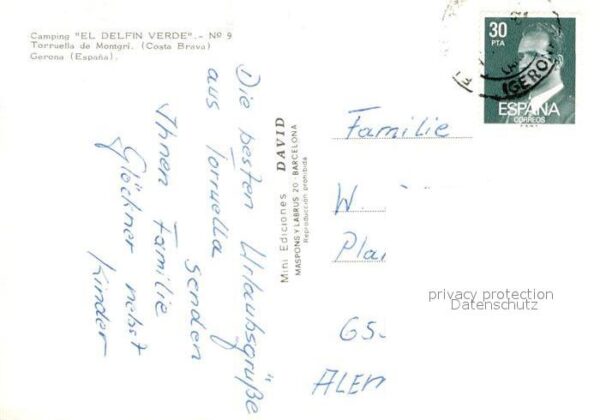 Camping "EL DELFIN VERDE".- Nº 9
Torruella de Montgrí. (Costa Brava)
Gerona (España).
Die besten Urlaubsgrüße
aus Torruella
senden
Ihnen Familie
Glöckner nebst
Kinder
Mini Ediciones DAVID
MASPONS Y LABRUS 20 - BARCELONA
Reproducción prohibida
30
PTA
ESPAÑA
CORREOS
(GERONA)
Familie
W
Pla
privacy protection
Datenschutz
GS.
ALEM